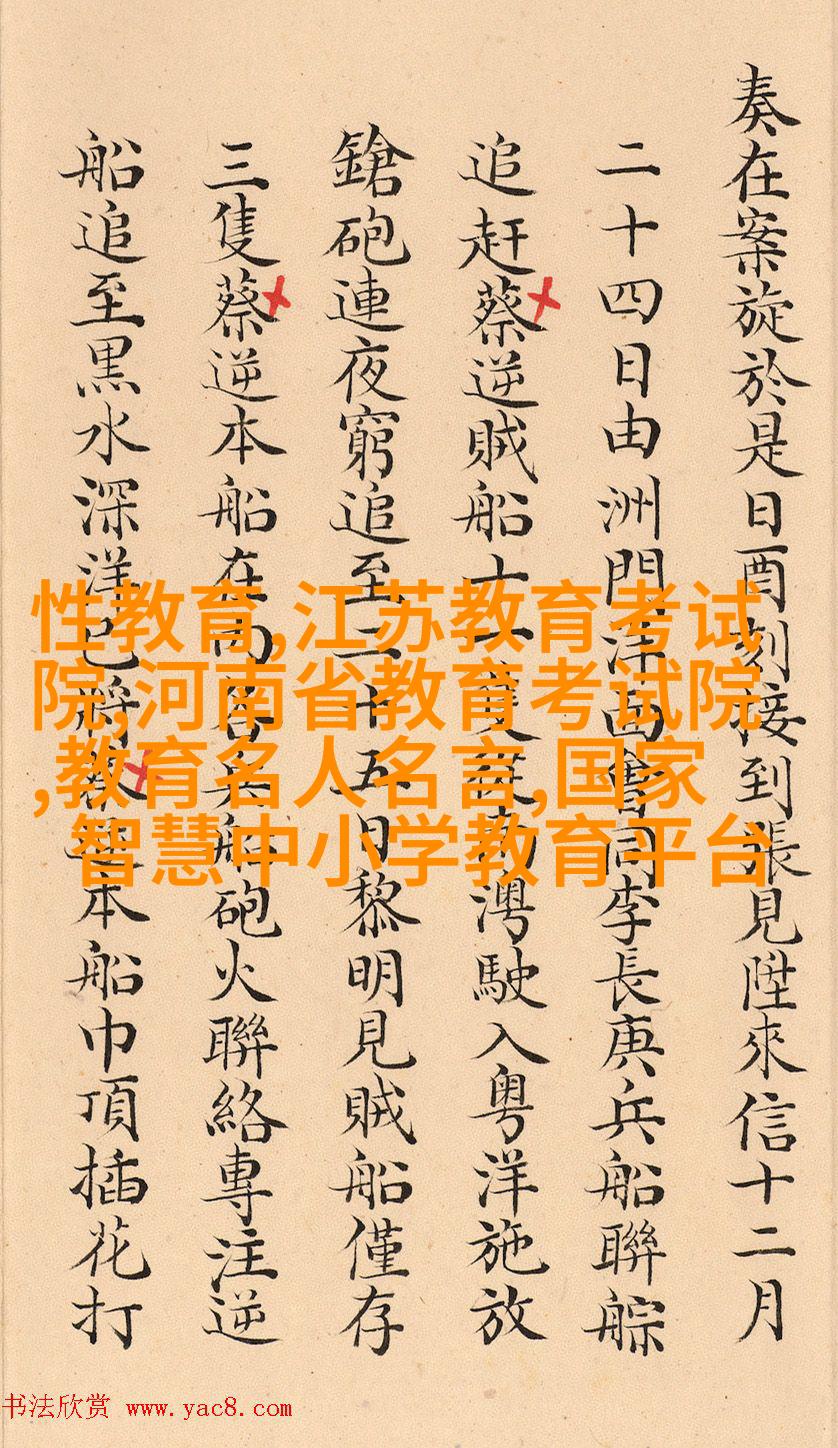 奏在案旋於是日酉刻接到張見陞來信十二月
二十四日由洲門洋面會同李長庚兵船聯䑸
追赶蔡逆賊船十 駛入粤洋施放
鎗砲連夜窮追至二十五日黎明見賊船僅存
三隻蔡逆本船在 砲火聯絡專注逆
船追至黒水深洋已將 本船巾頂插花打
性教育,江苏教育考试
院,河南省教育考试院
,教育名人名言,国家
智慧中小学教育平台
书法欣赏 www.yac8.com